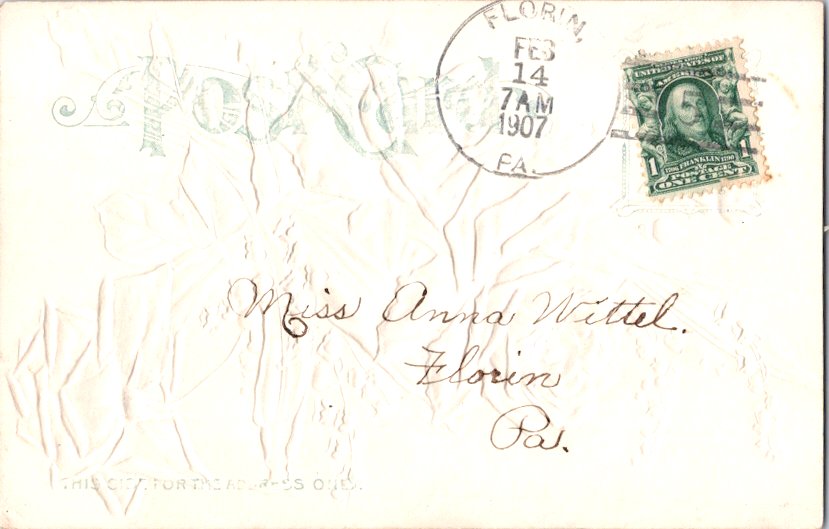 Post Card
FLORIN,
FEB
14
7 AM
1907
PA.
UNITED STATES OF
AMERICA
1 1706 FRANKLIN 1790 1
POSTAGE
ONE CENT
Miss Anna Wittel.
Florin
Pa.
THIS SIDE FOR THE ADDRESS ONLY.